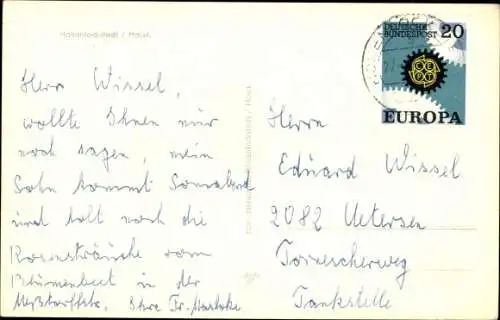 Hohenlockstedt / Holst.
Herr Wissel,
wollte Ihnen nur
noch sagen, mein
Sohn kommt Sonnabend
und holt noch die
Rosensträuche vom
Blumenbeet in der
Ihre Fr.
DEUTSCHE
BUNDESPOST
20
CEPT
EUROPA
Herrn
Eduard Wissel
2082 Uetersen
Tornescherweg
Tankstelle